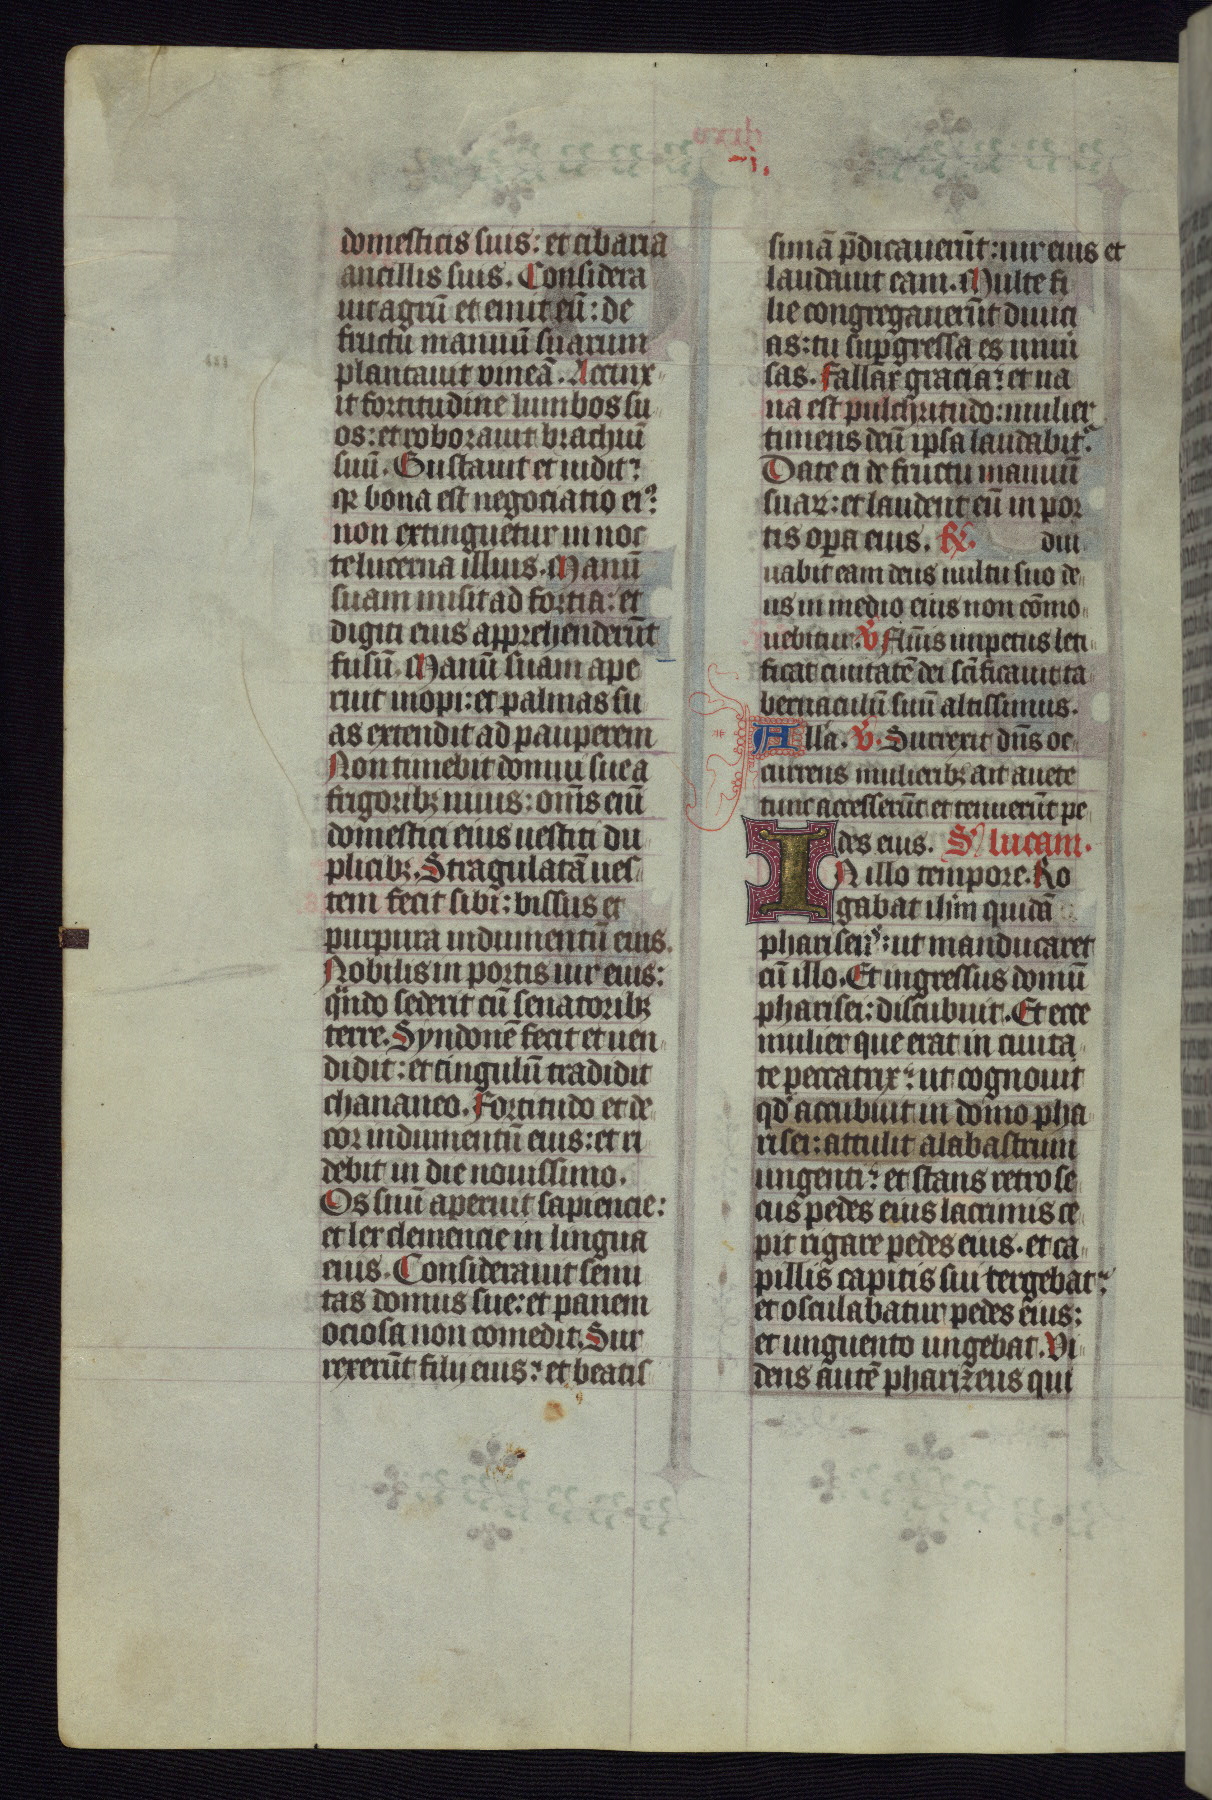 i.
domesticis suis: et cibaria
ancillis suis. Considera
uit agrū et emit eū: de
fructu manuū suarum
plantauit vineā. Accinx-
it fortitudine lumbos su-
os: et roborauit brachiū
suū. Gustauit et uidit:
qr bona est negociatio eiꝰ:
non extinguetur in noc
te lucerna illius. Manū
suam misit ad fortia: et
digiti eius apprehenderūt
fusū. Manū suam ape
ruit inopi: et palmas su
as extendit ad pauperem
Non timebit domui sue a
frigoribꝫ niuis: om̄s eiū
domestici eius uestiti du
plicibꝫ. Stragulatā ues-
tem fecit sibi: bissus et
purpura indumentū eius.
Nobilis in portis uir eius:
qn̄do sederit cū senatoribꝫ
terre. Syndonē fecit et uen-
didit: et cingulū tradidit
chananeo. Fortitudo et de-
cor indumentū eius: et ri
debit in die nouissimo.
Os suū aperuit sapiencie:
et lex clemencie in lingua
eius. Considerauit semi
tas domus sue: et panem
ociosa non comedit. Sur
rexerūt filij eius: et beatis-
simā p̄dicauerūt: uir eius et
laudauit eam. Multe fi
lie congregauerūt diuici
as: tu suꝑgressa es uniū
sas. Fallax gracia: et ua
na est pulchritudo: mulier
timens deū ipsa laudabitᷣ.
Date ei de fructu manuū
suaꝝ: et laudent eū in por
tis oꝑa eius. R̄. diu
uabit eam deus uultu suo de-
us in medio eius non cōmo-
uebitur. V̄ Flūis impetus leti-
ficat ciuitatē dei sc̄ificauit ta
bernaculū suū altissimus.
Alla. V̄. Surrexit dn̄s oc-
currens mulieribꝫ ait auete
tunc accesserūt et tenuerūt pe-
des eius. S. lucam.
IN illo tempore. Ro
gabat ihm quidā
phariseꝰ: ut manducaret
cū illo. Et ingressus domū
pharisei: discubuit. Et ecce
mulier que erat in ciuita-
te peccatrix: ut cognouit
qd accubuit in domo pha-
risei: attulit alabastrum
ungenti: et stans retro se-
cus pedes eius lacrimis ce-
pit rigare pedes eius. et ca-
pillis capitis sui tergebat:
et osculabatur pedes eius:
et unguento ungebat. Vi-
dens autē pharizeus qui